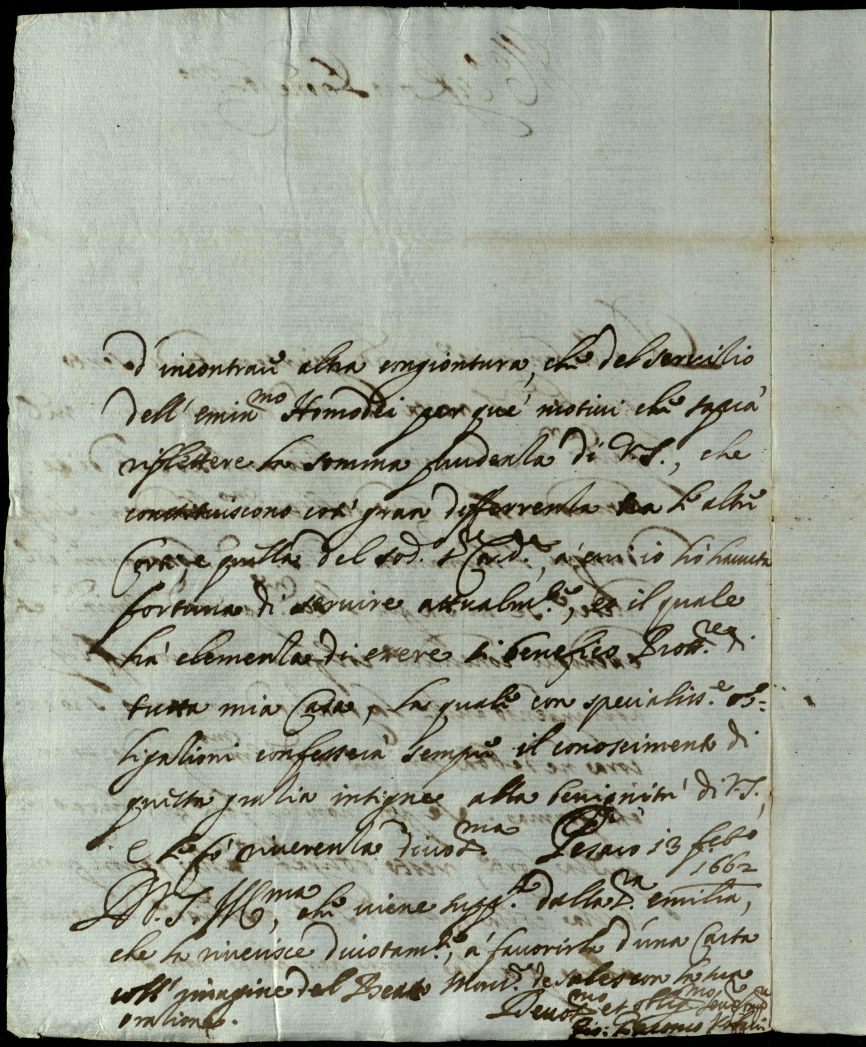 d'incontrare altra congiontura, che del servitio
dell'emin.mo Homodei per que' motivi che saprà
riflettere la somma prudenza di V.S., che
constituiscono così gran differenza tra le altre
Case, e quella del sod.o Card.e, à cui io hò havuta
fortuna di servire attualm.te, et il quale
hà clemenza di essere il benefico Prott.re di
tutta mia Casa, la quale con specialiss.e ob-
ligationi confesserà sempre il conoscimento di
questa gratia insigne alla benignità di V.S.,
e le fò riverenza divot.ma Pesaro 13 febo
1662
V.S. Ill.ma, che viene supp.ta dalla S.a emilia,
che la riverisce divotam.te, à favorirla d'una Carta
coll'imagine del Beato Mons.r de sales con la sua
oratione.
Devot.mo et oblig.mo
Gio: